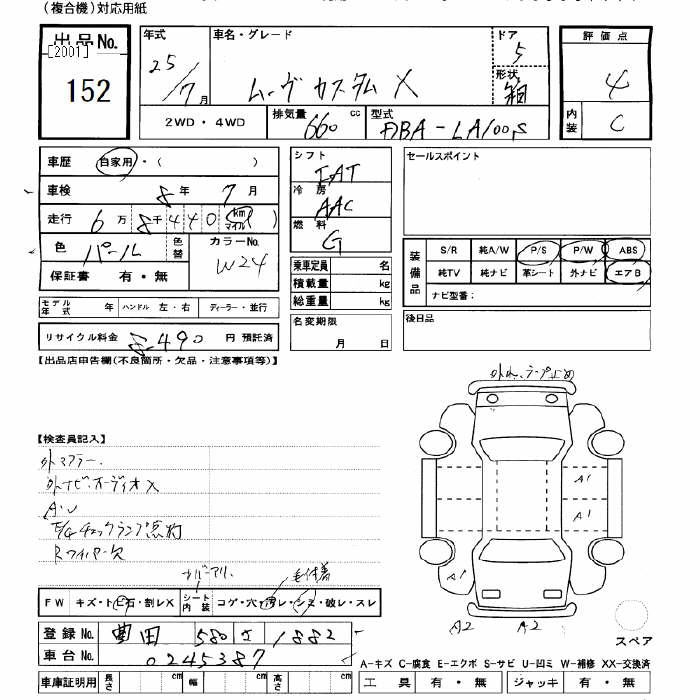 (複合機)対応用紙
出品No.
[2001]
152
年式
25/7月
車名・グレード
ムーヴ カスタム X
ドア
5
形状
箱
評価点
4
内装
C
2WD・4WD
排気量
660 cc
型式
DBA-LA100S
車歴
自家用・( )
車検
8年 7月
走行
6万8千440 km
マイル
色
パール
色替
カラーNo.
W24
保証書 有・無
モデル年式 年
ハンドル 左・右
ディーラー・並行
リサイクル料金
8490円 預託済
シフト
FAT
冷房
AAC
燃料
G
乗車定員 名
積載量 kg
総重量 kg
名変期限
月 日
セールスポイント
装備品
S/R 純A/W P/S P/W ABS
純TV 純ナビ 革シート 外ナビ エアB
ナビ型番:
後日品
【出品店申告欄(不良箇所・欠品・注意事項等)】
【検査員記入】
外マフラー.
外ナビ・オーディオX
A・U
E/G チェックランプ点灯
Rワイパー欠
FW キズ・トビ石・割レX
シート内装
コゲ・穴・汚レ・シミ・破レ・スレ
登録No.
豊田 580 1882
車台No.
0245387
車庫証明用
長さ cm
幅 cm
高さ cm
A1
A1
A1
A2
A2
スペア
A-キズ C-腐食 E-エクボ S-サビ U-凹ミ W-補修 XX-交換済
工具 有・無
ジャッキ 有・無